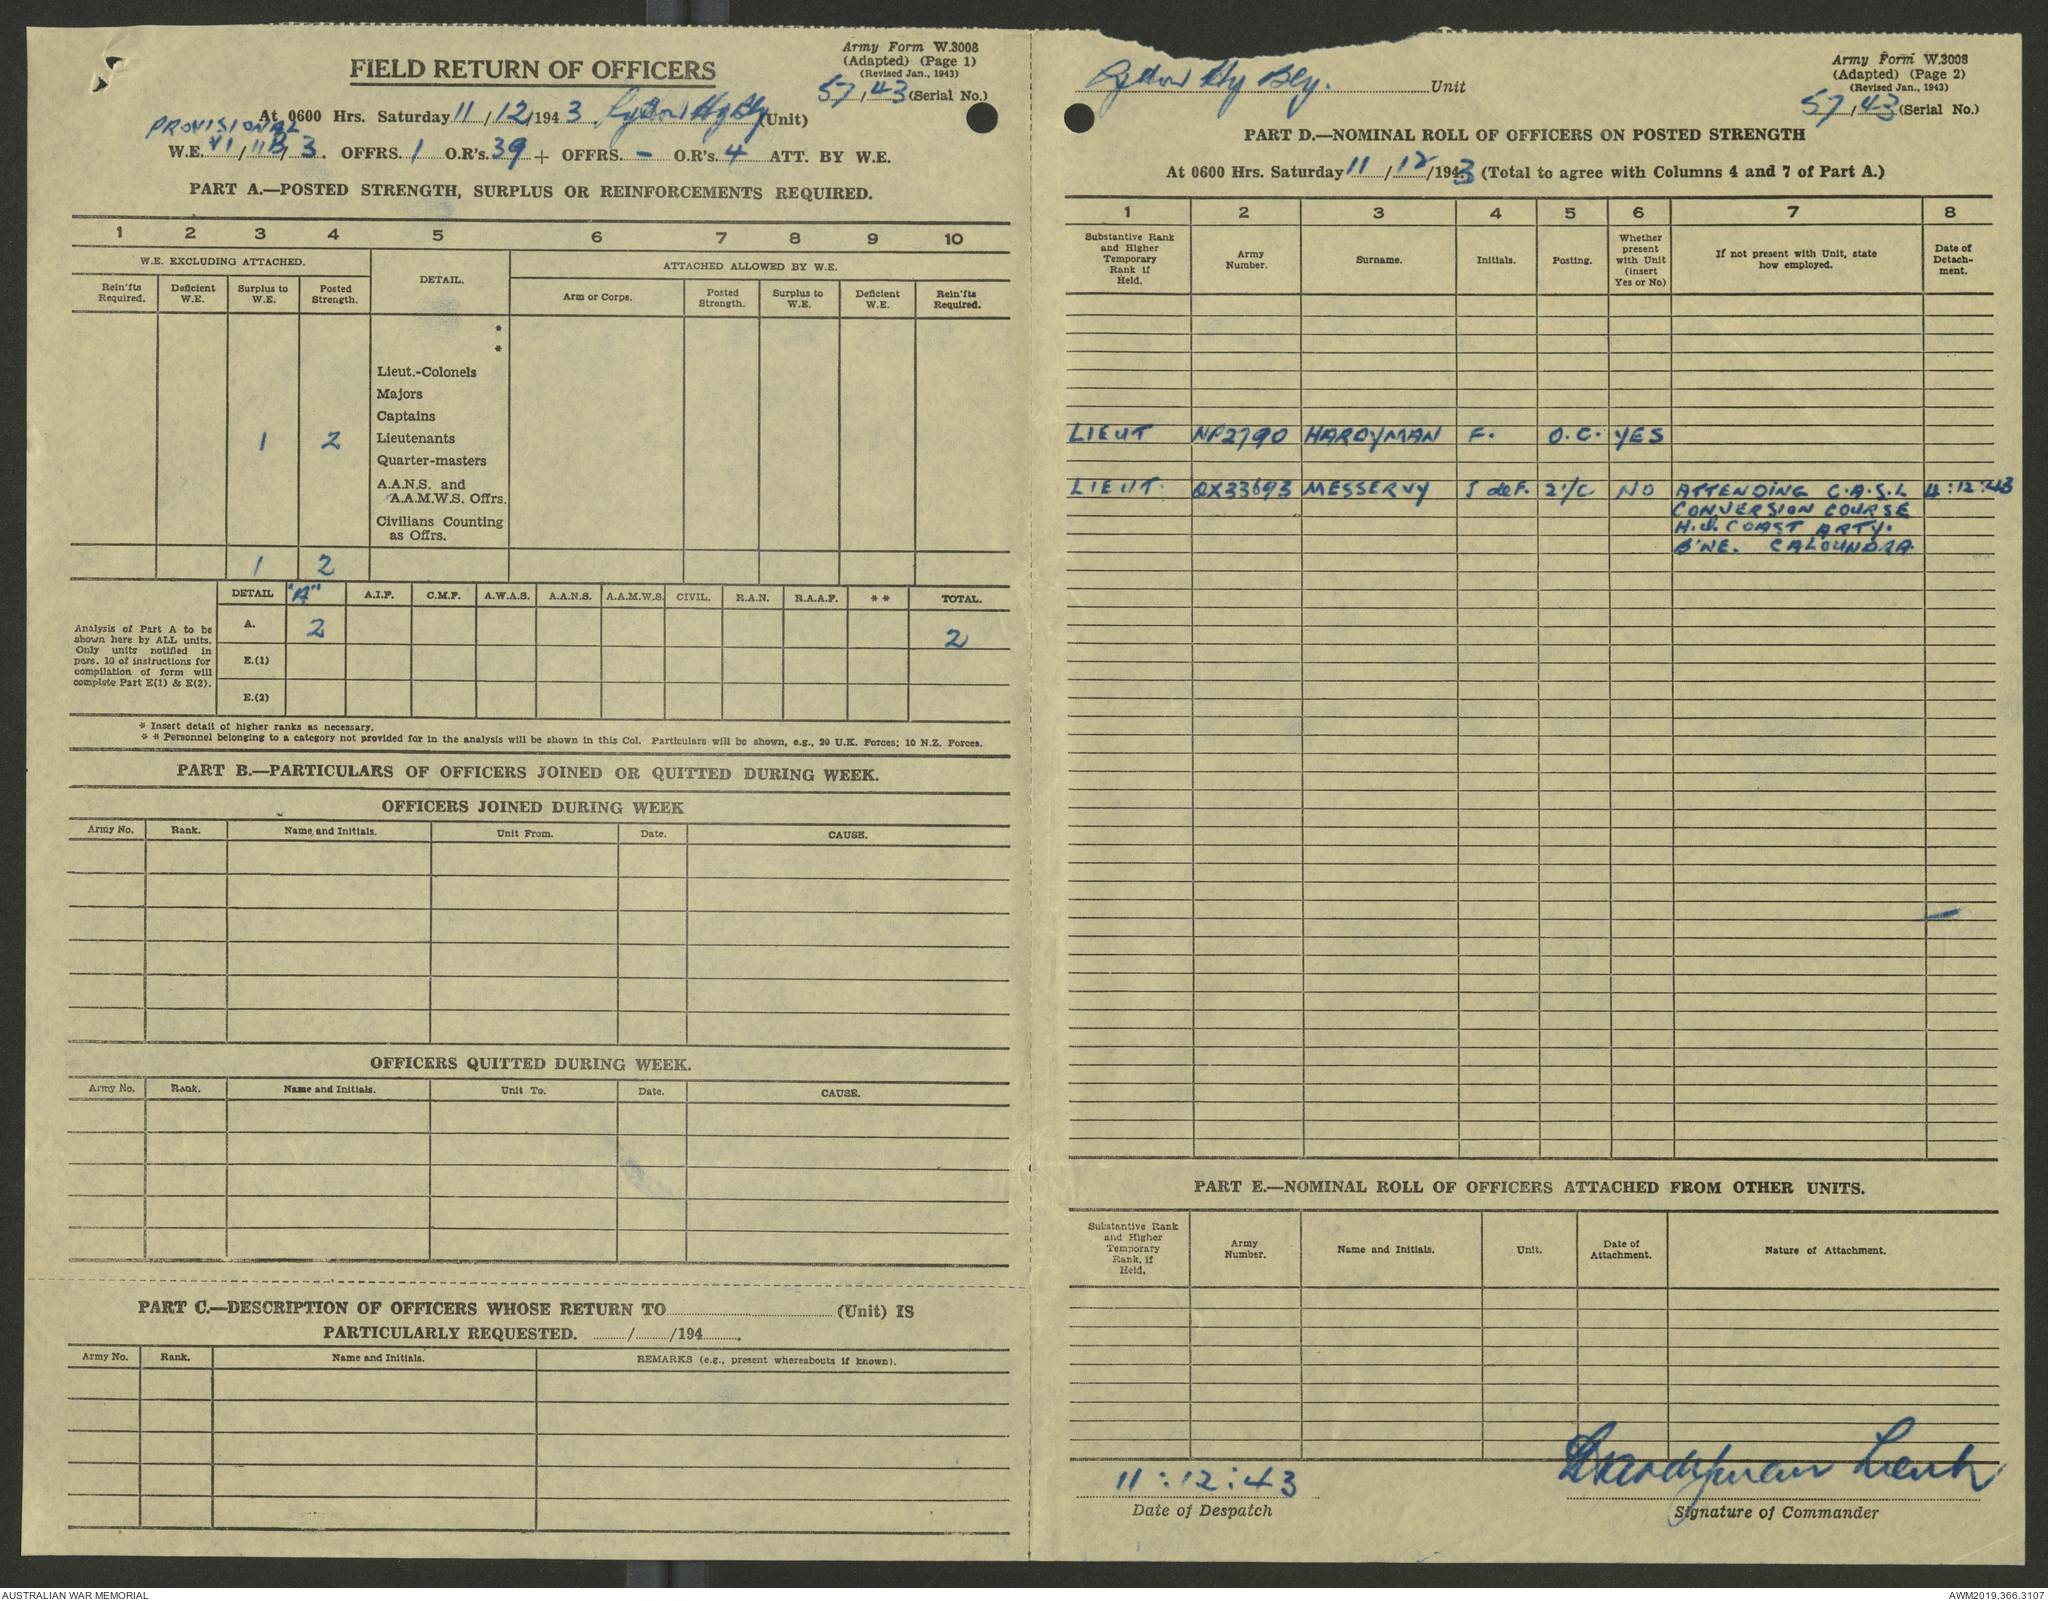 Army Form W.3008
(Adapted) (Page 1)
(Revised Jan., 1943)
57/43 (Serial No.)
FIELD RETURN OF OFFICERS
At 0600 Hrs. Saturday 11/12/1943. Lytton Hy Bty (Unit)
PROVISIONAL
W.E. VI/11B/3. OFFRS. 1 O.R's. 39 + OFFRS. - O.R's. 4 ATT. BY W.E.
PART A.—POSTED STRENGTH, SURPLUS OR REINFORCEMENTS REQUIRED.
1 2 3 4 5 6 7 8 9 10
W.E. EXCLUDING ATTACHED. DETAIL. ATTACHED ALLOWED BY W.E.
Rein'fts Required. Deficient W.E. Surplus to W.E. Posted Strength. Arm or Corps. Posted Strength. Surplus to W.E. Deficient W.E. Rein'fts Required.
*
*
Lieut.-Colonels
Majors
Captains
1 2 Lieutenants
Quarter-masters
A.A.N.S. and
A.A.M.W.S. Offrs.
Civilians Counting
as Offrs.
1 2
DETAIL "A" A.I.F. C.M.F. A.W.A.S. A.A.N.S. A.A.M.W.S. CIVIL. R.A.N. R.A.A.F. ** TOTAL.
Analysis of Part A to be
shown here by ALL units.
Only units notified in
pars. 10 of instructions for
compilation of form will
complete Part E(1) & E(2).
A. 2 2
E.(1)
E.(2)
* Insert detail of higher ranks as necessary.
* * Personnel belonging to a category not provided for in the analysis will be shown in this Col. Particulars will be shown, e.g., 20 U.K. Forces; 10 N.Z. Forces.
PART B.—PARTICULARS OF OFFICERS JOINED OR QUITTED DURING WEEK.
OFFICERS JOINED DURING WEEK
Army No. Rank. Name and Initials. Unit From. Date. CAUSE.
OFFICERS QUITTED DURING WEEK.
Army No. Rank. Name and Initials. Unit To. Date. CAUSE.
PART C.—DESCRIPTION OF OFFICERS WHOSE RETURN TO (Unit) IS
PARTICULARLY REQUESTED. / /194 .
Army No. Rank. Name and Initials. REMARKS (e.g., present whereabouts if known).
Army Form W.3008
(Adapted) (Page 2)
(Revised Jan., 1943)
57/43 (Serial No.)
Lytton Hy Bty. Unit
PART D.—NOMINAL ROLL OF OFFICERS ON POSTED STRENGTH
At 0600 Hrs. Saturday 11/12/1943 (Total to agree with Columns 4 and 7 of Part A.)
1 2 3 4 5 6 7 8
Substantive Rank and Higher Temporary Rank if Held. Army Number. Surname. Initials. Posting. Whether present with Unit (insert Yes or No) If not present with Unit, state how employed. Date of Detachment.
LIEUT NP2790 HARDYMAN F. O.C. YES
LIEUT. QX33693 MESSERVY J deF. 2I/C NO ATTENDING C.A.S.L 4:12:43
CONVERSION COURSE
H.Q. COAST ARTY.
B'NE. CALOUNDRA
PART E.—NOMINAL ROLL OF OFFICERS ATTACHED FROM OTHER UNITS.
Substantive Rank and Higher Temporary Rank, if Held. Army Number. Name and Initials. Unit. Date of Attachment. Nature of Attachment.
11:12:43
Date of Despatch
FHardyman Lieut
Signature of Commander
AUSTRALIAN WAR MEMORIAL
AWM2019.366.3107